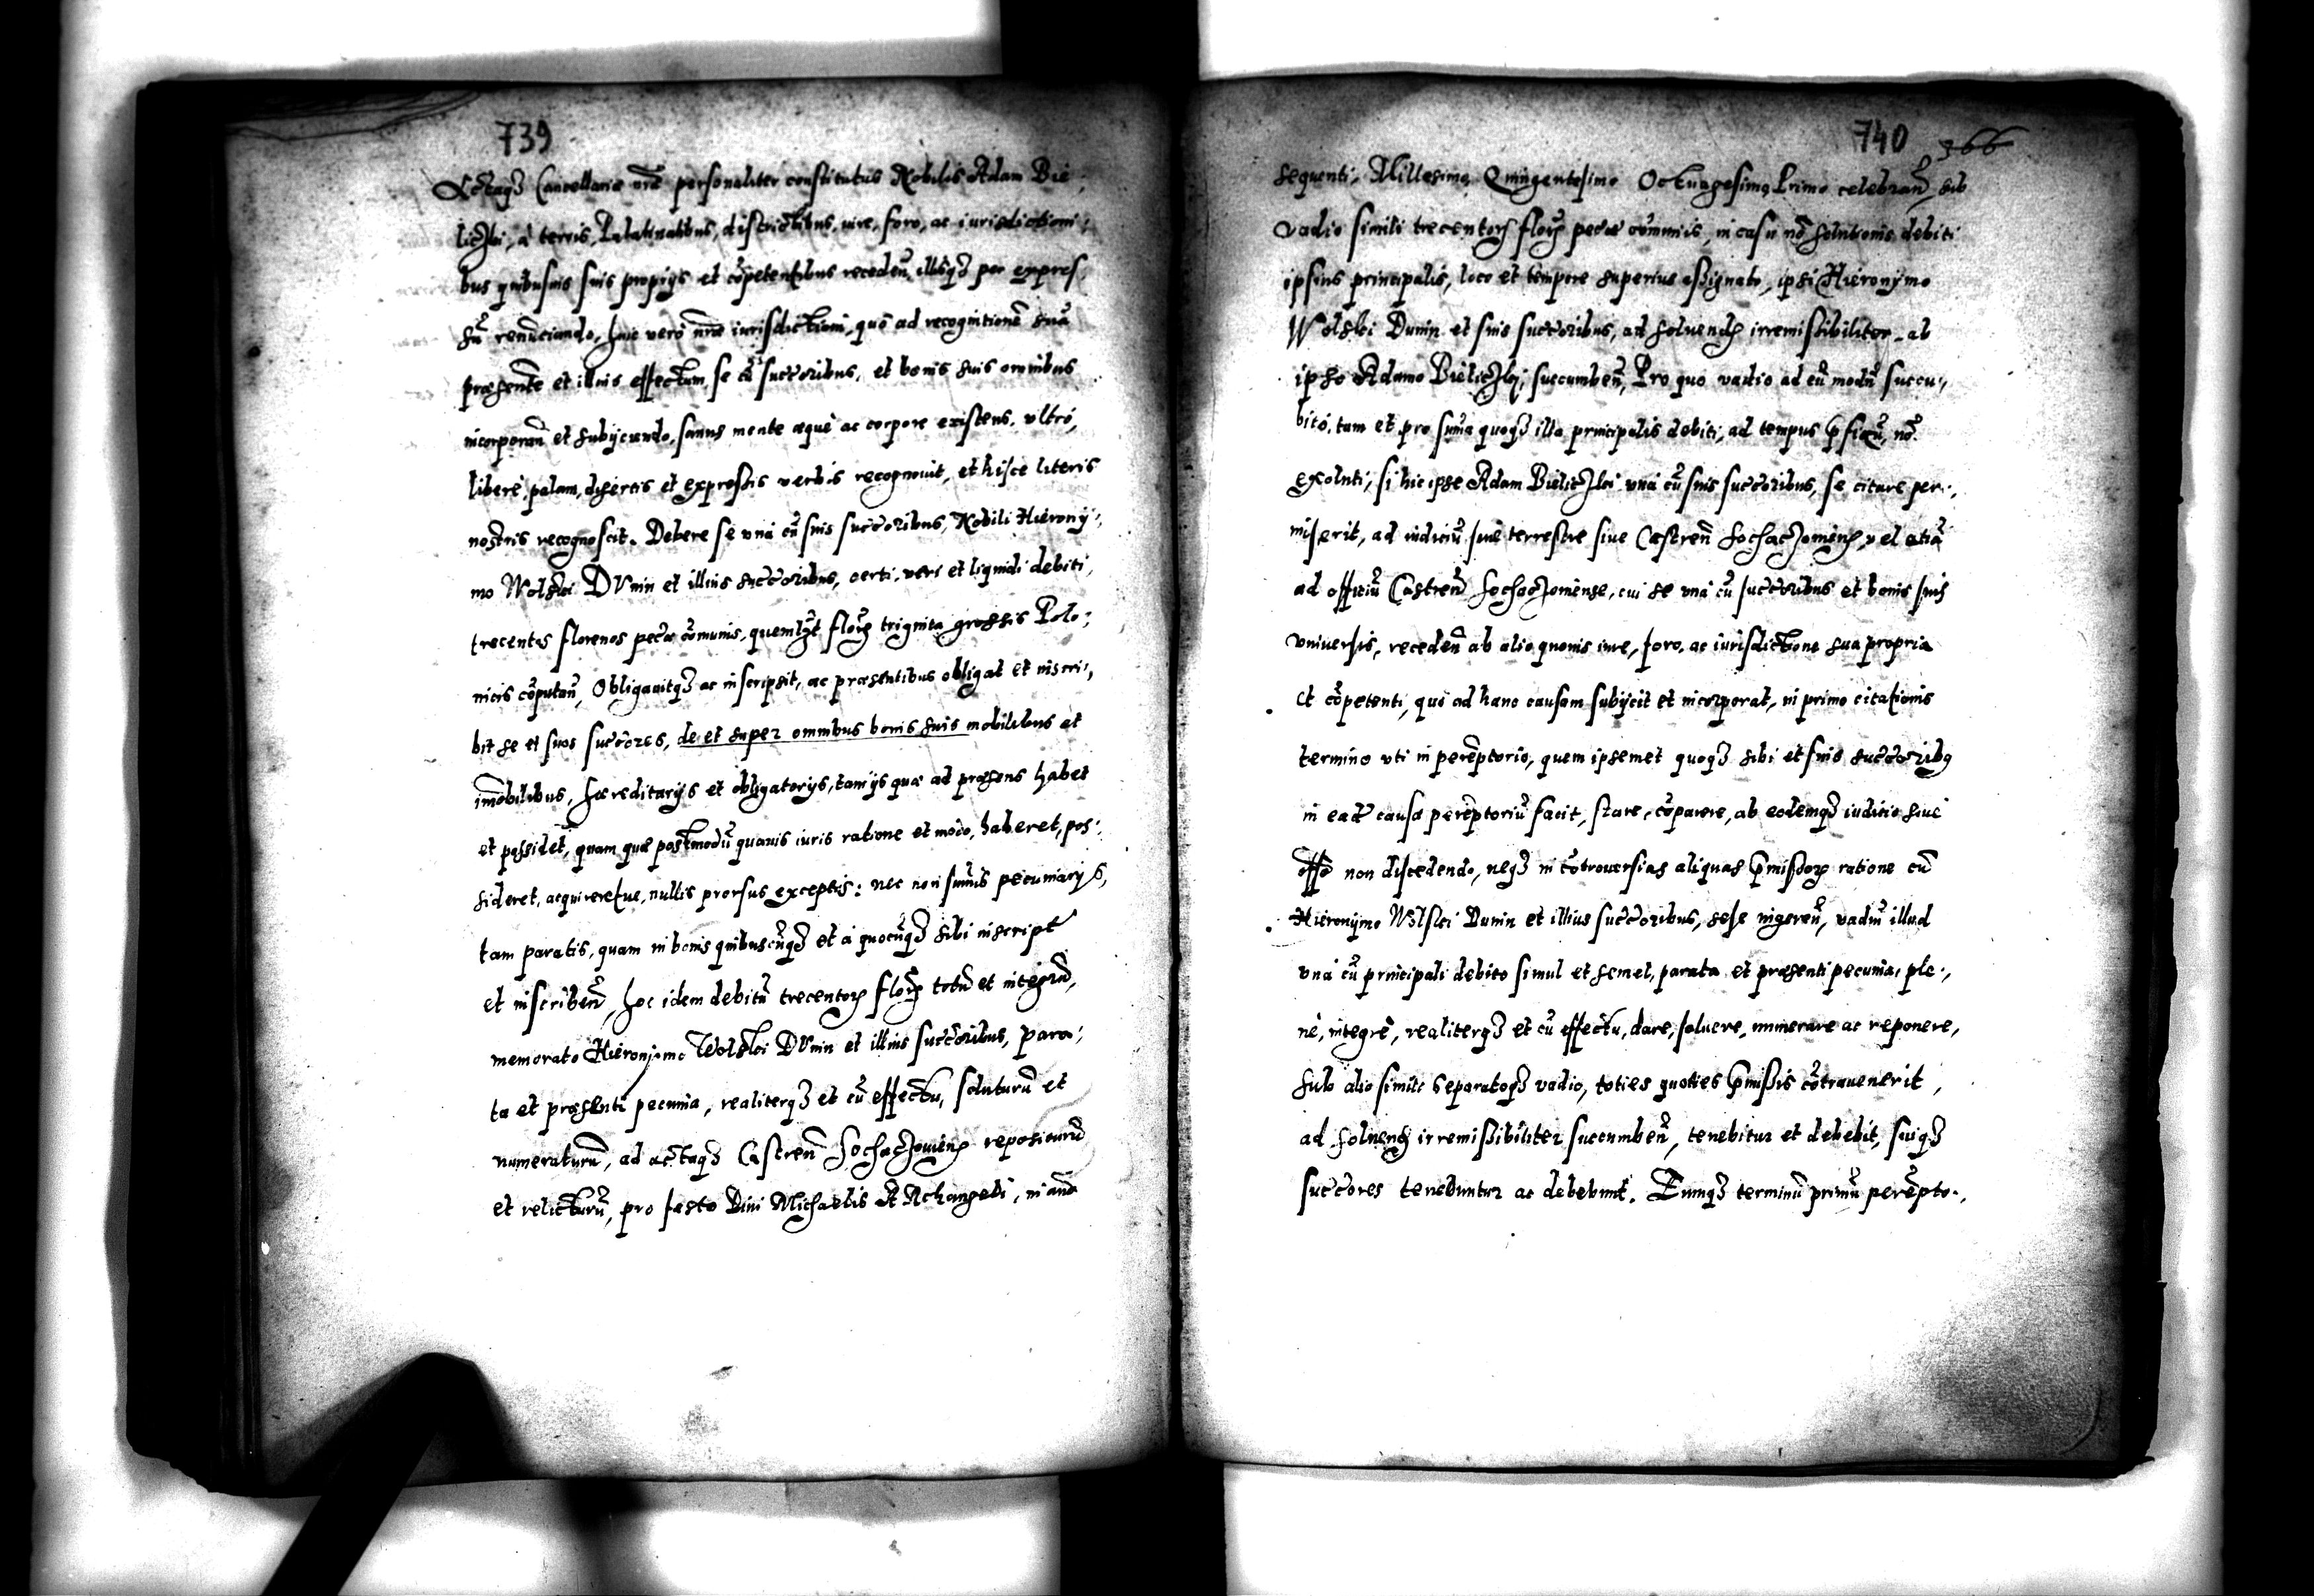 739
Actaqꝫ Cancellariæ nr̃æ personaliter constitutus Nobilis Adam Bie-,
liczki, à terris, Palatinatibus, districtibus, iure, foro, ac iurisdictioni-,
bus quibusuis suis proprijs et cõpetentibus recedeñ, illisqꝫ per expres,
sũ renũciando, huic verò nr̃æ iurisdictioni, quò ad recognitionẽ suã
præsentẽ et illius effectum, se cũ succ̃oribus, et bonis suis omnibus
incorporañ et subijciendo, sanus mente æquè ac corpore existens, vltrò,
liberè, palam, disertis et expressis verbis recognouit, et hisce literis
nostris recognoscit. Debere se vnà cũ suis succ̃oribus, Nobili Hierony-,
mo Wolski DVnin et illius succ̃oribus, certi, veri et liquidi debiti,
trecentos florenos pec̃æ cõmunis, quemlibꝫt floꝝ triginta grossis Polo-,
nicis cõputañ, Obligauitqꝫ ac inscripsit, ac præsentibus obligat et inscri-,
bit se et suos succ̃ores, de et super omnibus bonis suis mobilibus et
im̃obilibus, hæreditarijs et obligatorijs, tam ijs quæ ad præsens habet
et possidet, quam quæ postmodũ quauis iuris ratione et modo, haberet, pos-,
sideret, acquireretue, nullis prorsus exceptis: nec non sum̃is pecuniarijs,
tam paratis, quam in bonis quibuscũqꝫ et à quocũqꝫ sibi inscript̃
et inscribeñ, hoc idem debitũ trecentoꝝ floꝝ totũ et integrũ,
memorato Hieronymo Wolski DVnin et illius succ̃oribus, para-,
ta et præsenti pecunia, realiterqꝫ et cũ effectu, soluturũ et
numeraturũ, ad actaqꝫ Castreñ Sochaczouieñ repositurũ
et relicturũ, pro festo Diui Michaelis Archangeli, in anõ
740 366
sequenti, Millesimo Quingentesimo Octuagesimo Primo celebrañ, sub
vadio simili trecentoꝝ floꝝ pec̃æ cõmunis, in casu nõ solutionis debiti
ipsius principalis, loco et tempore superius assignato, ipsi Hieronymo
Wolski Dunin et suis succ̃oribus, ad soluendꝫ irremissibiliter ab
ipso Adamo Bieliczki, succumbeñ, Pro quo vadio ad eũ modũ succu-,
bitó, tam et pro sum̃a quoqꝫ illa principalis debiti, ad tempus p̃fixũ, nõ
exoluti, si hic ipse Adam Bieliczki vnà cũ suis succ̃oribus, se citare per-,
miserit, ad iudiciũ siue terrestre siue Castreñ Sochaczouieñ, vel etiã
ad officiũ Castreñ Sochaczouiense, cui se vnà cũ succ̃oribus et bonis suis
vniuersis, recedeñ ab alio quouis iure, foro, ac iurisdictione sua propria
et cõpetenti, quò ad hanc causam subijcit et incorporat, in primo citationis
termino vti in perẽptorio, quem ipsemet quoqꝫ sibi et suis succ̃oribꝫ
in eadẽ causa perẽptoriũ facit, stare, cõparere, ab eodemqꝫ iuditio siue
off̃o non discedendo, neqꝫ in cõtrouersias aliquas p̃missoꝝ ratione cũ
Hieronymo Wolski Dunin et illius succ̃oribus, sese ingereñ, vadiũ illud
vnà cũ principali debito simul et semel, parata et præsenti pecunia, ple-,
nè, integrè, realiterqꝫ et cũ effectu, dare, soluere, numerare ac reponere,
sub alio simili separatoqꝫ vadio, toties quoties p̃missis cõtrauenerit,
ad soluendꝫ irremissibiliter succumbeñ, tenebitur et debebit, suiqꝫ
succ̃ores tenebuntur ac debebunt. Eumqꝫ terminũ primũ perẽpto-,